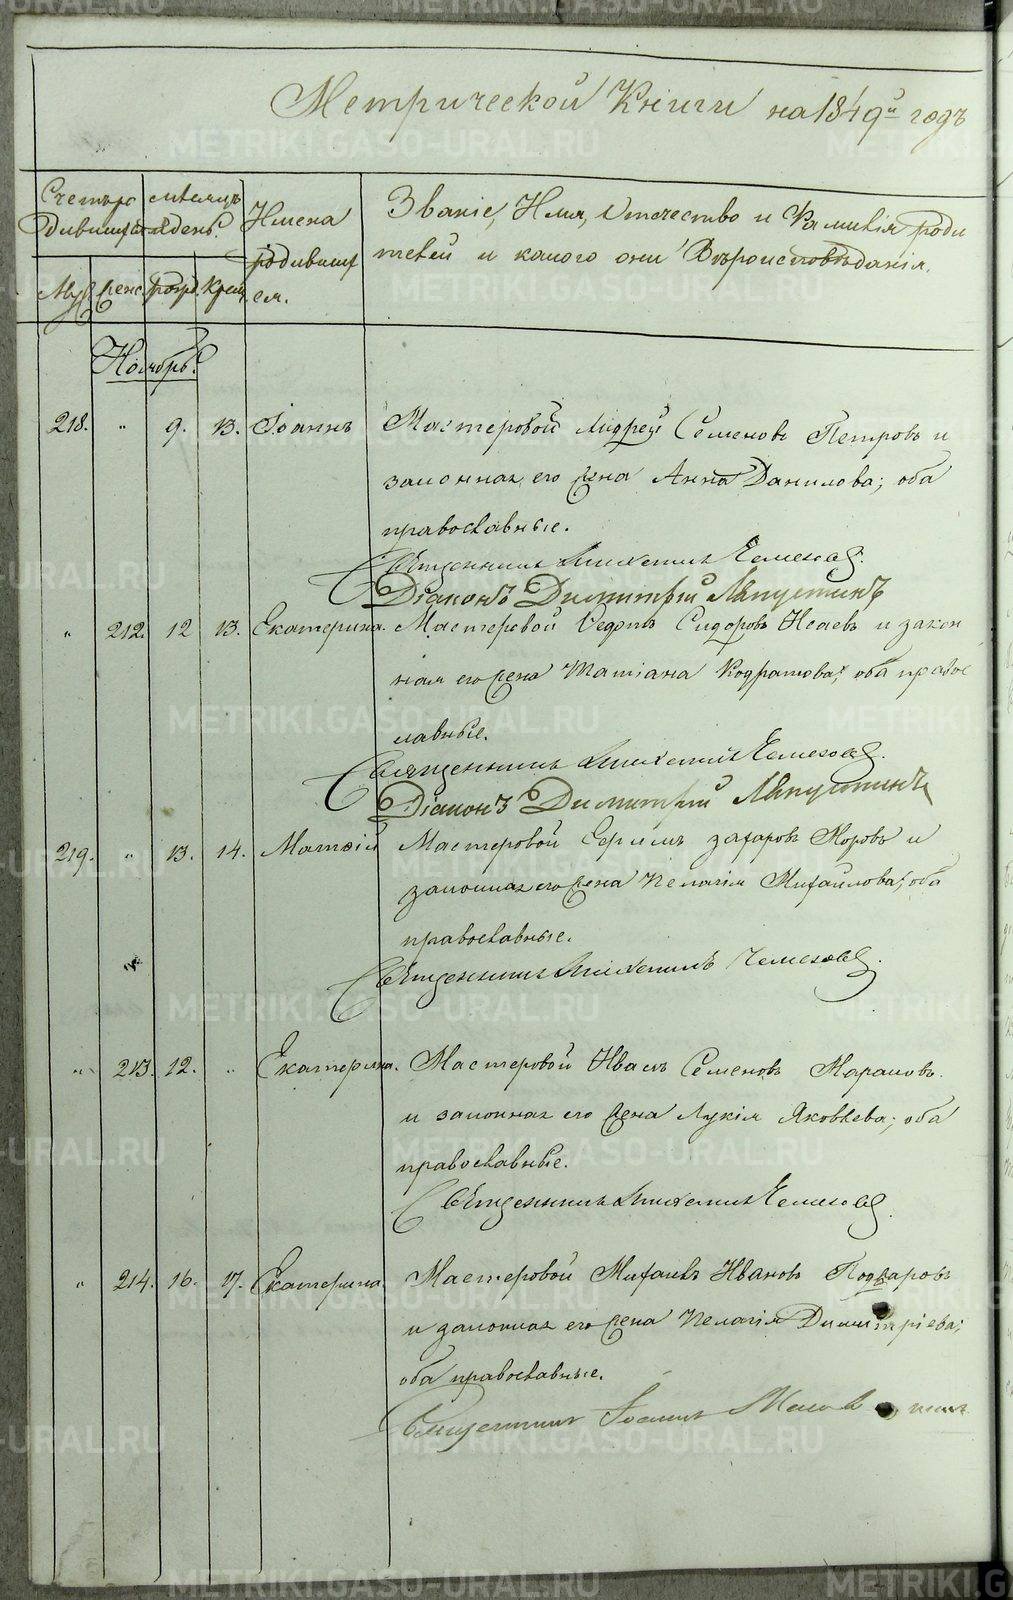 Метрической Книги на 1849й годъ
Счетъ ро
дившихся
месяцъ
и день.
Муж.
женс.
рожд.
крещ.
Имена
родивших
ся.
Званіе, Имя, Отечество и Фамилія роди
телей и какого они Вѣроисповѣданія.
Ноябрь.
218. " 9. 13. Іоаннъ Мастеровой Андрей Семеновъ Петровъ и
законная его жена Анна Данилова; оба
православные.
Священникъ Михаилъ Чемезовъ.
Діаконъ Димитрій Ляпустинъ
" 212. 12 13. Екатерина. Мастеровой Федотъ Сидоровъ Исаевъ и закон
ная его жена Татіана Кодратова; оба правос
лавные.
Священникъ Михаилъ Чемезовъ.
Діаконъ Димитрій Ляпустинъ
219. " 13. 14. Матѳій Мастеровой Ефимъ Захаровъ и
законная его жена Пелагія Михаилова; оба
православные.
Священникъ Михаилъ Чемезовъ.
" 213. 12. " Екатерина. Мастеровой Иванъ Семеновъ
и законная его жена Лукія Яковлева; оба
православные.
Священникъ Михаилъ Чемезовъ.
" 214. 16. 17. Екатерина. Мастеровой Михаилъ Ивановъ
и законная его жена Пелагія Димитріева;
оба православные.
Священникъ Іоаннъ
METRIKI.GASO-URAL.RU